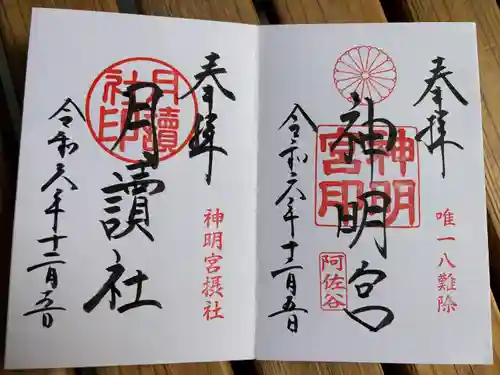 奉拝
唯一八難除
神明宮
神明宮印
阿佐谷
令和六年十二月五日
奉拝
神明宮摂社
月讀社
月讀社印
令和六年十二月五日